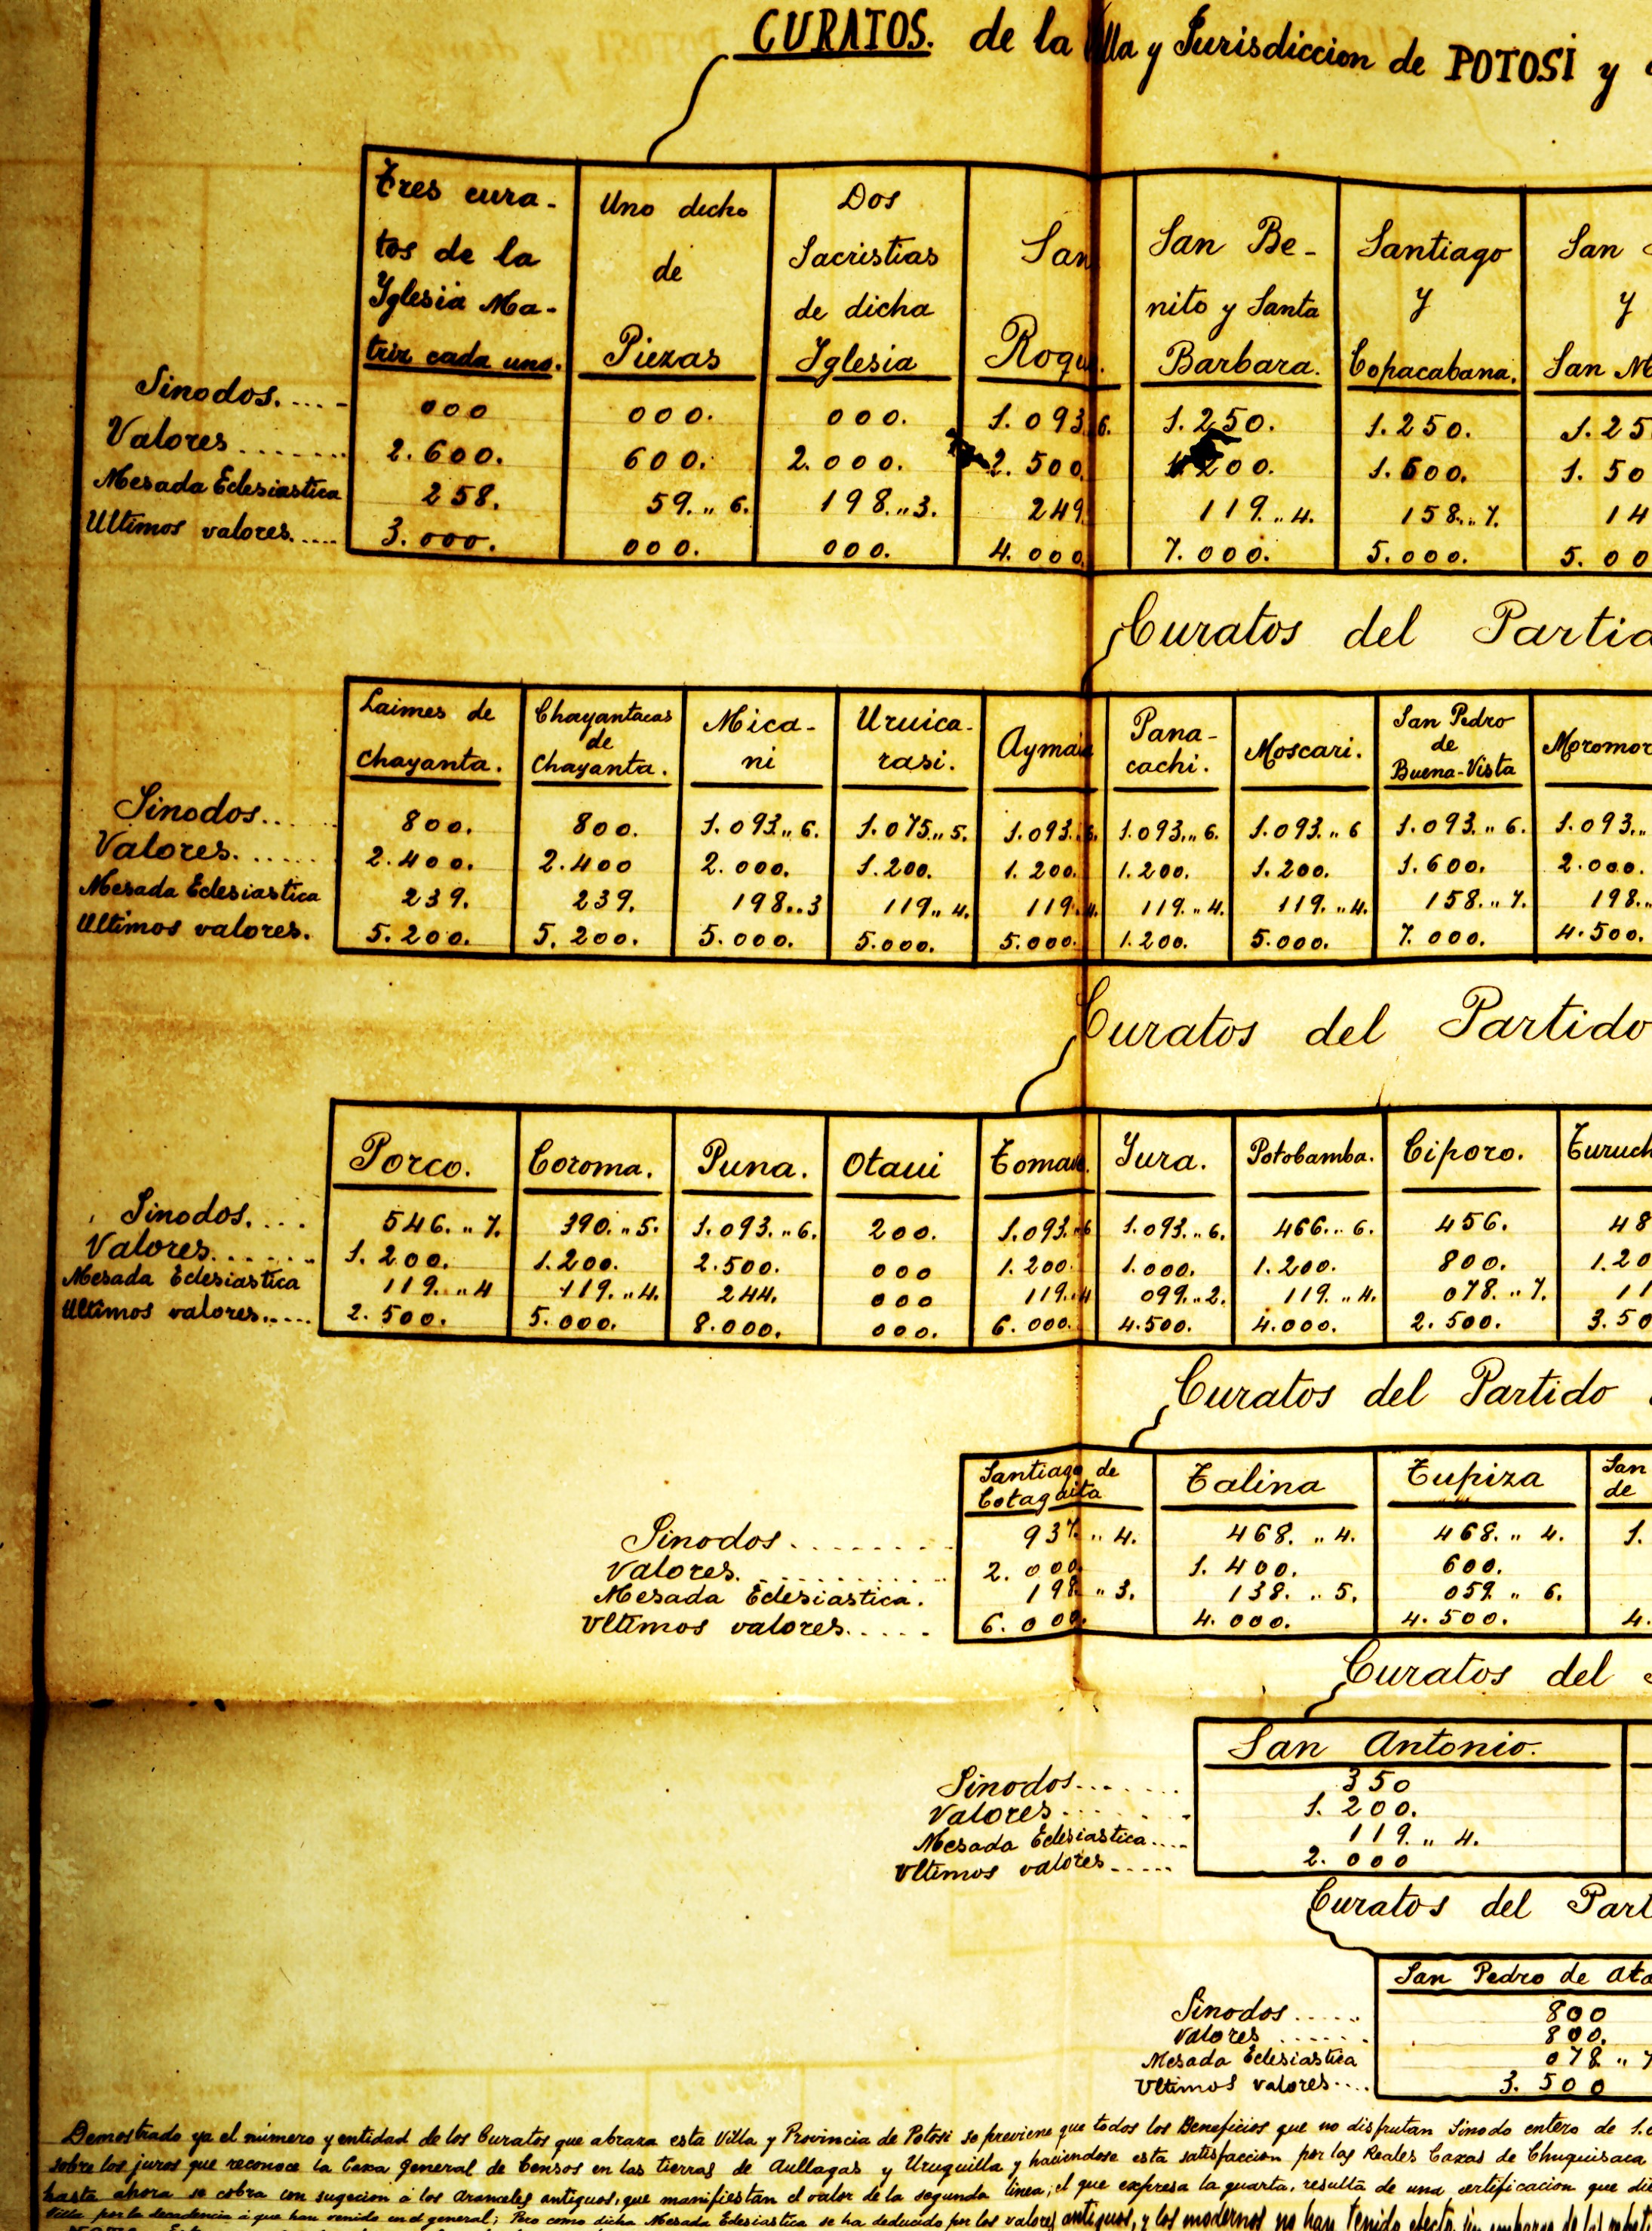 CURATOS. de la Villa y Jurisdiccion de POTOSI y
Tres cura-
tos de la
Yglesia Ma-
triz cada uno.
Uno dicho
de
Piezas
Dos
Sacristias
de dicha
Yglesia
San
Roque.
San Be-
nito y Santa
Barbara.
Santiago
y
Copacabana.
San
y
San M
Sinodos..... 000 000. 000. 1.093 6. 1.250. 1.250. 1.25
Valores....... 2.600. 600. 2.000. 2.500 200. 1.600. 1.50
Mesada Eclesiastica 258. 59.,,6. 198.,,3. 249 119.,,4. 158.,,7. 14
Ultimos valores..... 3.000. 000. 000. 4.000 7.000. 5.000. 5.00
Curatos del Partid
Laimes de
Chayanta.
Chayantacas
de
Chayanta.
Mica-
ni
Uruica-
rasi.
Aymaia
Pana-
cachi.
Moscari.
San Pedro
de
Buena-Vista
Moromor
Sinodos.... 800. 800. 1.093.,,6. 1.075.,,5. 1.093.,,6. 1.093.,,6. 1.093.,,6 1.093.,,6. 1.093.,,
Valores....... 2.400. 2.400 2.000. 1.200. 1.200. 1.200. 1.200. 1.600. 2.000.
Mesada Eclesiastica 239. 239. 198..3 119.,,4. 119.,,4. 119.,,4. 119.,,4. 158.,,7. 198.,,
Ultimos valores. 5.200. 5.200. 5.000. 5.000. 5.000. 1.200. 5.000. 7.000. 4.500.
Curatos del Partido
Porco. Coroma. Puna. Otaui Tomave. Yura. Potobamba. Ciporo. Turuch
Sinodos.... 546.,,7. 390.,,5. 1.093.,,6. 200. 1.093.,,6 1.093.,,6. 466.,,6. 456. 48
Valores....... 1.200. 1.200. 2.500. 000 1.200. 1.000. 1.200. 800. 1.20
Mesada Eclesiastica 119.,,4 119.,,4. 244. 000 119.,,4 099.,,2. 119.,,4. 078.,,7. 11
Ultimos valores..... 2.500. 5.000. 8.000. 000. 6.000. 4.500. 4.000. 2.500. 3.50
Curatos del Partido
Santiago de
Cotagaita
Talina
Tupiza
San
de
Sinodos........ 937.,,4. 468.,,4. 468.,,4. 1.
Valores.......... 2.000. 1.400. 600.
Mesada Eclesiastica. 198.,,3. 138.,,5. 059.,,6.
Ultimos valores..... 6.000. 4.000. 4.500. 4.
Curatos del
San Antonio.
Sinodos....... 350
Valores....... 1.200.
Mesada Eclesiastica.... 119.,,4.
Ultimos valores..... 2.000
Curatos del Part
San Pedro de Ata
Sinodos..... 800
Valores...... 800.
Mesada Eclesiastica 078.,,7
Ultimos valores.... 3.500
Demostrado ya el número y entidad de los Curatos que abraza esta Villa y Provincia de Potosi se previene que todos los Beneficios que no disfrutan Sinodo entero de 1.0
sobre los juros que reconoce la Caxa general de Censos en las tierras de Aullagas y Uruquilla y haciendose esta satisfaccion por las Reales Caxas de Chuquisaca
hasta ahora se cobra con sugecion á los Aranceles antiguos, que manifiestan el valor de la segunda linea; el que expresa la quarta, resulta de una certificacion que
Villa por la decadencia á que han venido en el general; Pero como dicha Mesada Eclesiastica se ha deducido por los valores antiguos, y los modernos no han tenido efecto sin embargo de las